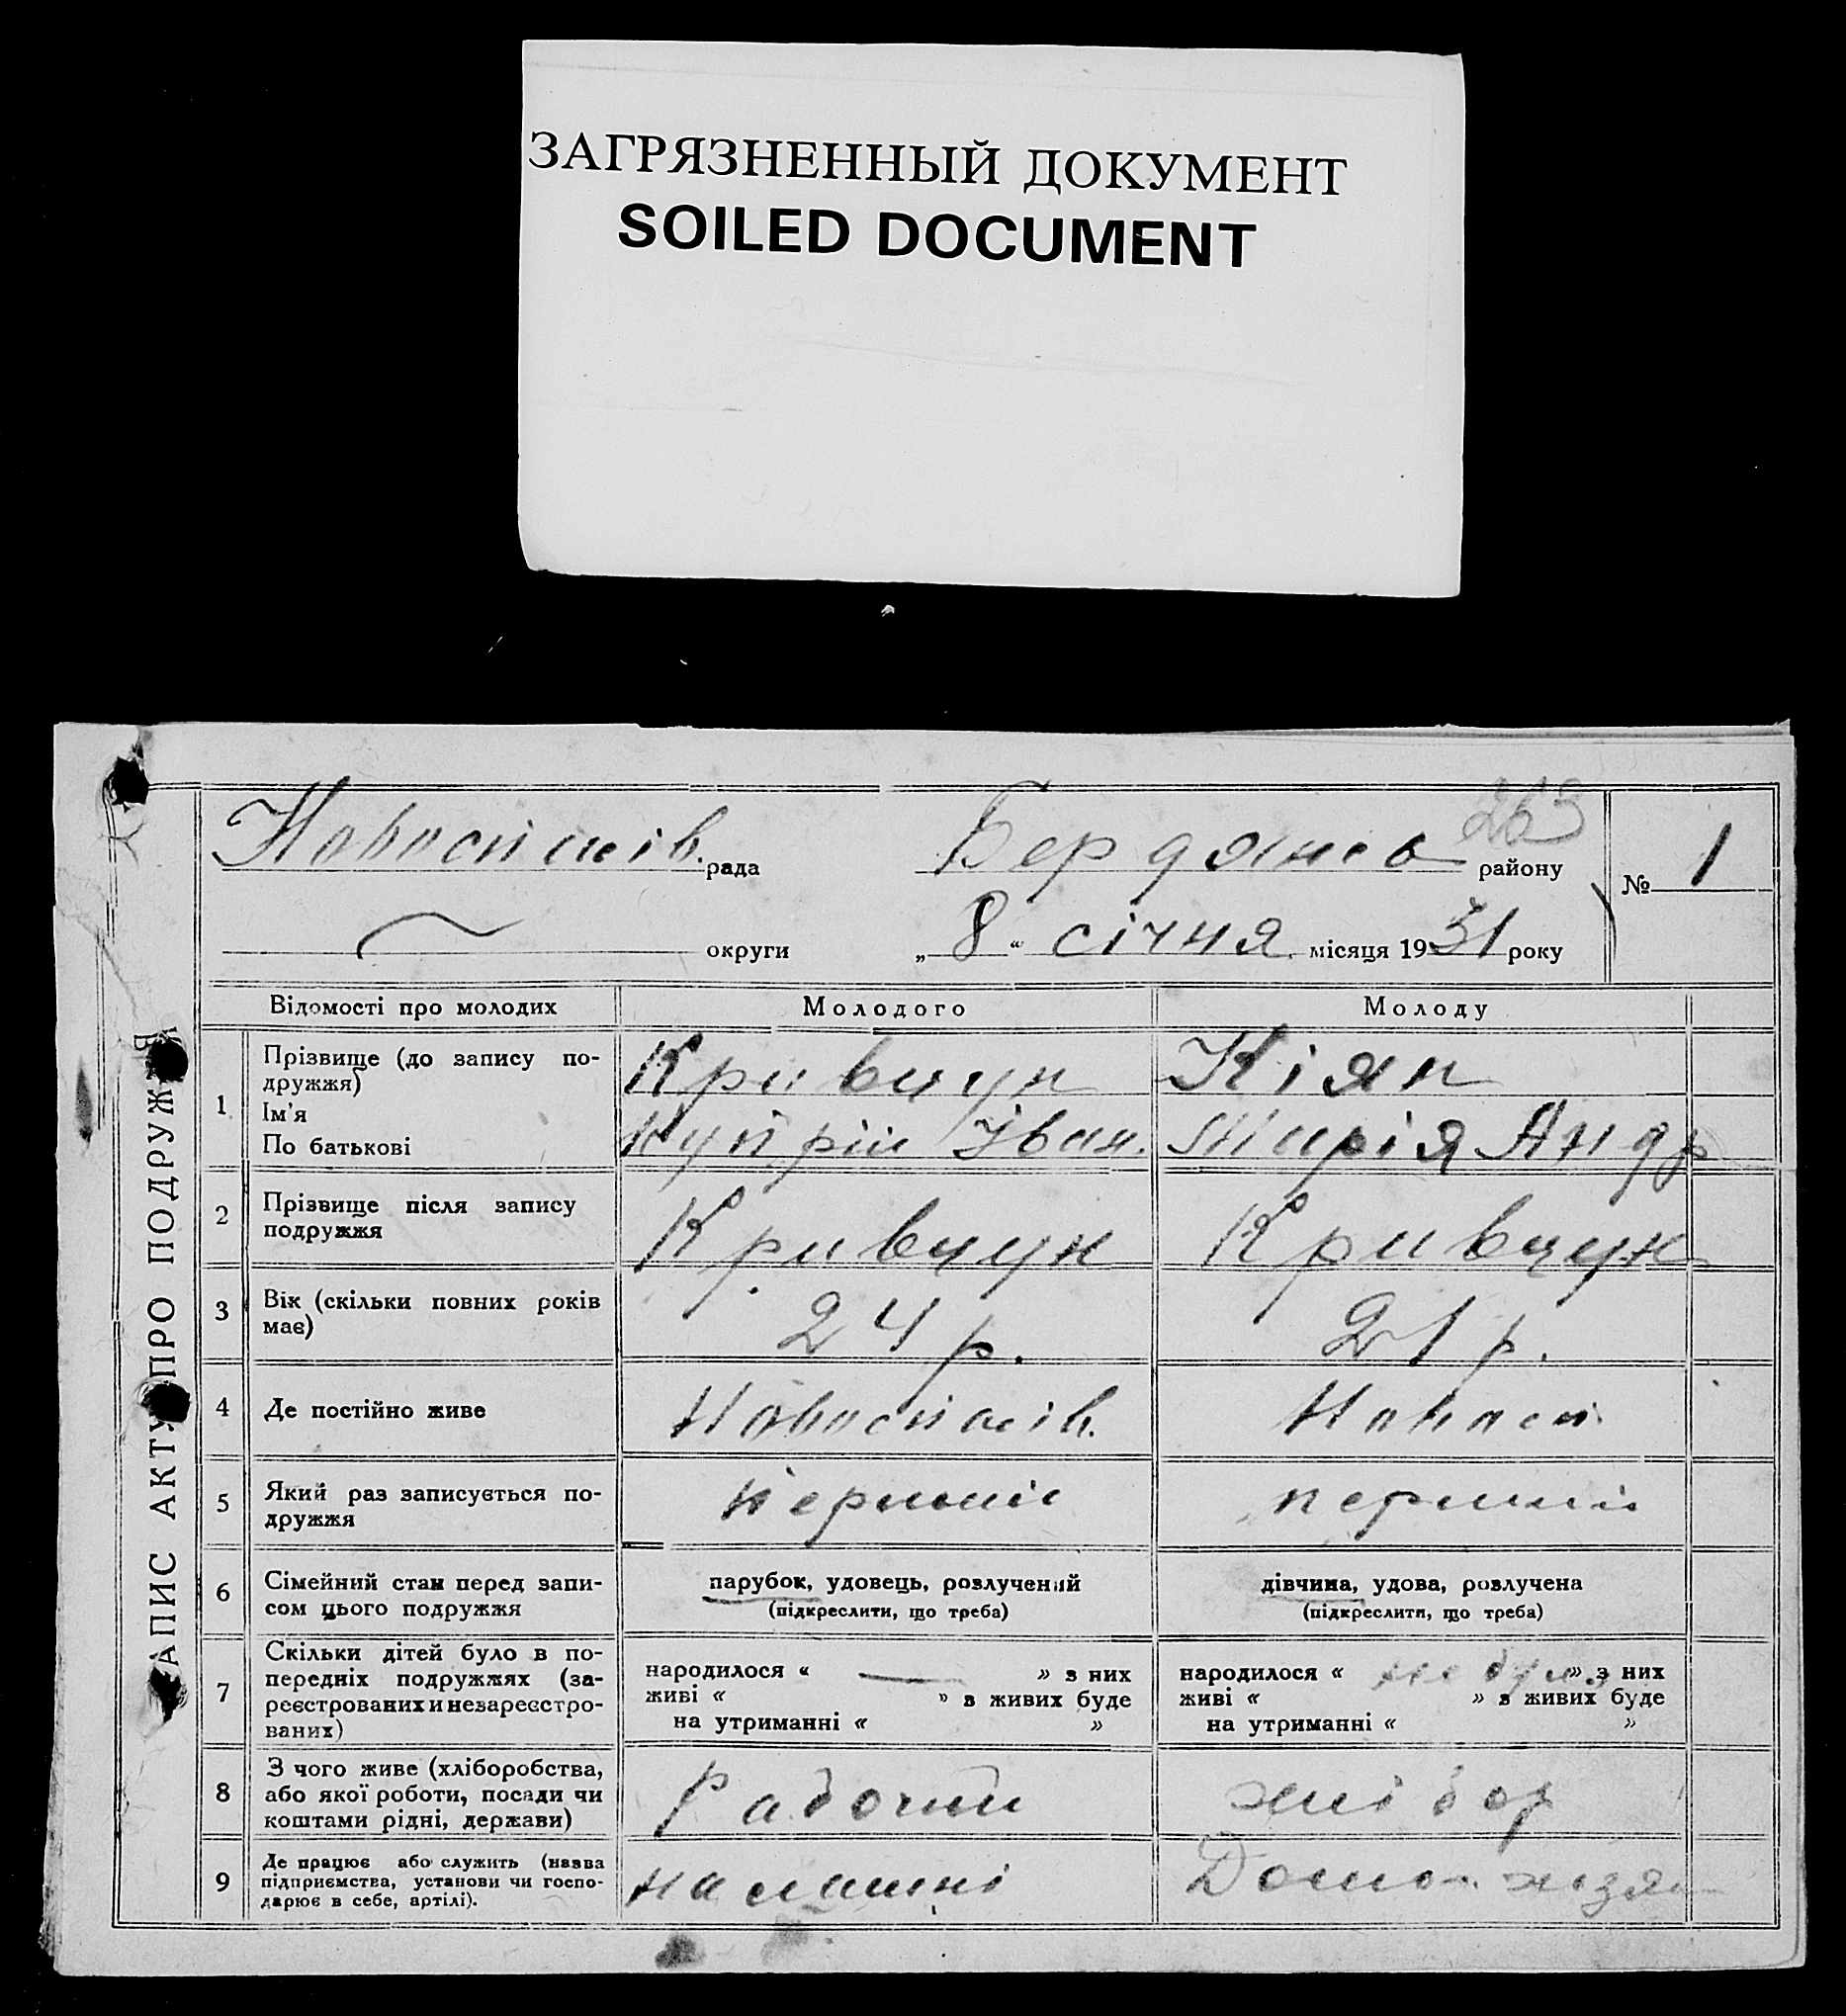 ЗАГРЯЗНЕННЫЙ ДОКУМЕНТ
SOILED DOCUMENT
263
Новоспасів. рада Бердянсь району № 1
округи „8“ січня місяця 1931 року
АПИС АКТУ ПРО ПОДРУЖ
Відомості про молодих Молодого Молоду
1 Прізвище (до запису по-
дружжя) Кривчун Кіян
Ім'я
По батькові Купрій Іван. Марія Андр
2 Прізвище після запису
подружжя Кривчун Кривчун
3 Вік (скільки повних років
має) 24 р. 21 р.
4 Де постійно живе Новоспасів. Новосп
5 Який раз записується по-
дружжя перший перший
6 Сімейний стан перед запи-
сом цього подружжя
парубок, удовець, розлучений дівчина, удова, розлучена
(підкреслити, що треба) (підкреслити, що треба)
7 Скільки дітей було в по-
передніх подружжях (за-
реєстрованих и незареєстро-
ваних)
народилося « — » з них
живі « » в живих буде
на утриманні « »
народилося « не було » з них
живі « » в живих буде
на утриманні « »
8 З чого живе (хліборобства,
або якої роботи, посади чи
коштами рідні, держави) Рабочий хлібор
9 Де працює або служить (назва
підприємства, установи чи госпо-
дарює в себе, артілі).